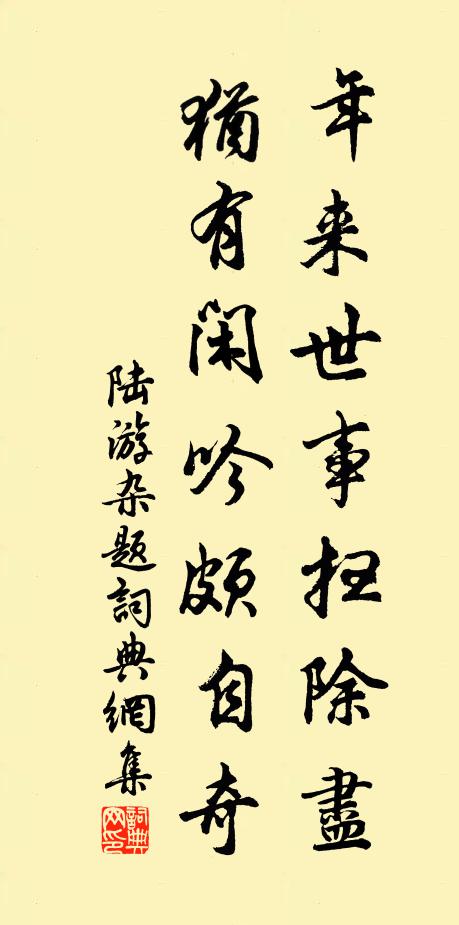 年来世事扫除盡
猶有闲吟颇自奇
陆游杂题詞典網集
詞典網印